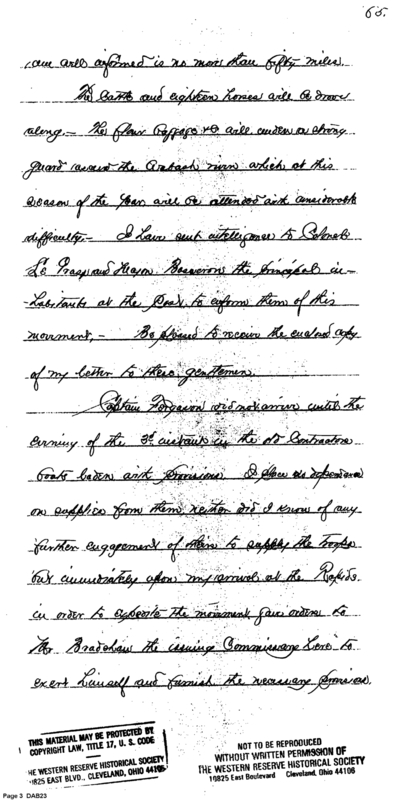 65.
am well informed is no more than fifty miles.
The Cattle and eighteen horses will be drove
along. - The flour Baggage &c will under a strong
guard ascend the Wabash river which at this
season of the year will be attended with considerable
difficulty. - I have sent intelligence to Colonels
Le Grasse and Major Bosseron the principal in-
-habitants at the Post to inform them of this
movement, - Be pleased to receive the enclosed copy
of my letter to these gentlemen.
Captain Ferguson did not arrive until the
evening of the 3d. instant in the old Contractors
boats laden with provisions. I place no dependence
on supplies from them neither did I know of any
further engagement of them to supply the troops
but immediately upon my arrival at the Rapids
in order to expedite the movement gave orders to
Mr. Bradshaw the issuing Commissary here to
exert himself and furnish the necessary provisions.
THIS MATERIAL MAY BE PROTECTED BY
COPYRIGHT LAW, TITLE 17, U. S. CODE
HE WESTERN RESERVE HISTORICAL SOCIETY
10825 EAST BLVD., CLEVELAND, OHIO 44106
NOT TO BE REPRODUCED
WITHOUT WRITTEN PERMISSION OF
THE WESTERN RESERVE HISTORICAL SOCIETY
10825 East Boulevard Cleveland, Ohio 44106
Page 3 DAB23